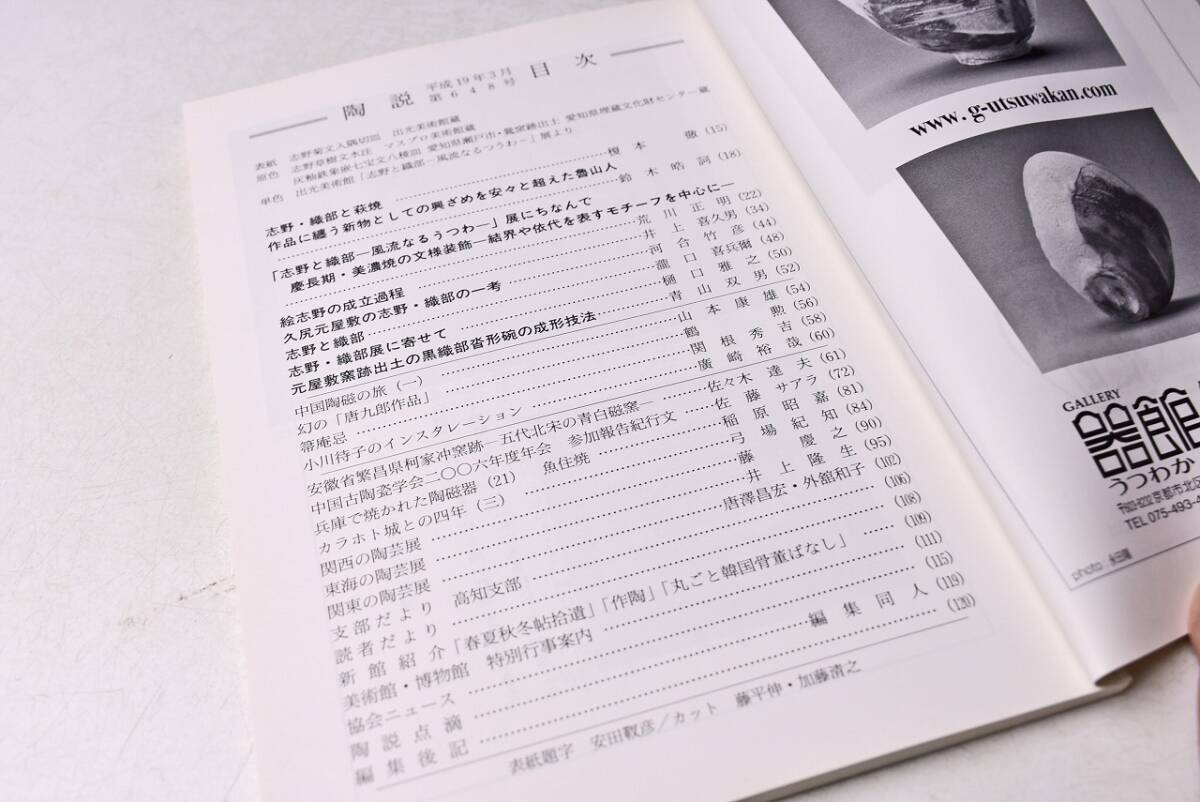 陶説 平成19年3月 第648号 目次
表紙 志野菊文入隅切皿 出光美術館蔵
原色 志野草樹文水注 マスプロ美術館蔵
灰釉鉄象嵌七宝文八稜皿 愛知県瀬戸市・鴬窯跡出土 愛知県埋蔵文化財センター蔵
単色 出光美術館「志野と織部―風流なるうつわ―」展より
志野・織部と萩焼 榎本 徹 (15)
作品に纏う新物としての興ざめを安々と超えた魯山人
鈴木皓詞 (18)
「志野と織部―風流なるうつわ―」展にちなんで
慶長期・美濃焼の文様装飾―結界や依代を表すモチーフを中心に―
荒川正明 (22)
絵志野の成立過程 井上喜久男 (34)
久尻元屋敷の志野・織部の一考 河合竹彦 (44)
志野と織部 瀧口喜兵爾 (48)
志野・織部展に寄せて 樋口雅之 (50)
元屋敷窯跡出土の黒織部沓形碗の成形技法 青山双男 (52)
中国陶磁の旅(一) 山本康雄 (54)
幻の「唐九郎作品」 鶴 勲 (56)
箒庵忌 関根秀吉 (58)
小川待子のインスタレーション 廣崎裕哉 (60)
安徽省繁昌県柯家冲窯跡―五代北宋の青白磁窯― 佐々木達夫 (61)
中国古陶瓷学会二〇〇六年度年会 参加報告紀行文 佐藤サアラ (72)
兵庫で焼かれた陶磁器(21) 魚住焼 稲原昭嘉 (81)
カラホト城との四年(三) 弓場紀知 (84)
関西の陶芸展 藤 慶之 (90)
東海の陶芸展 井上隆生 (95)
関東の陶芸展 唐澤昌宏・外舘和子 (102)
支部だより 高知支部 (106)
読者だより (108)
新館紹介「春夏秋冬帖拾遺」「作陶」「丸ごと韓国骨董ばなし」 (109)
美術館・博物館 特別行事案内 (111)
協会ニュース (115)
陶説点滴 編集同人 (119)
編集後記 (120)
表紙題字 安田靫彦/カット 藤平伸・加藤清之
www.g-utsuwakan.com
GALLERY
器館
うつわか
〒603-8232 京都市北区
TEL 075-493-
photo